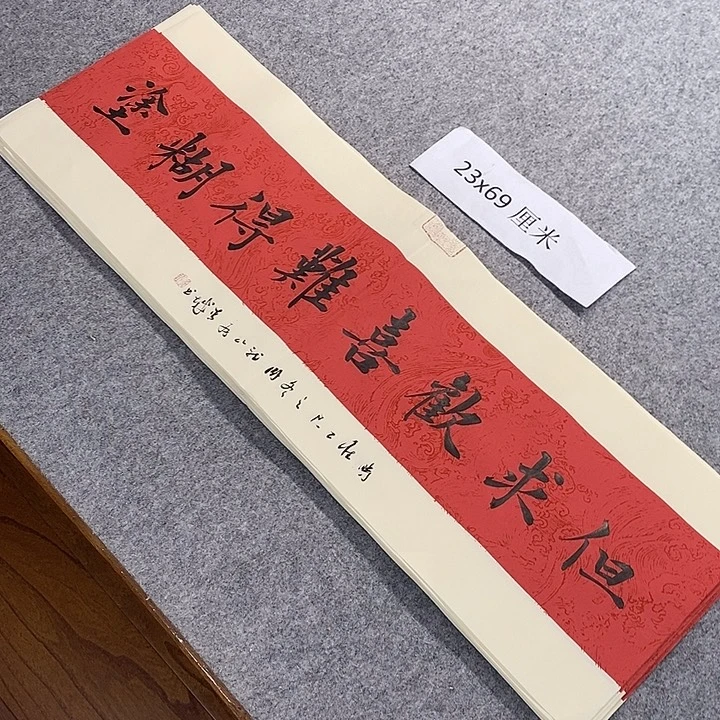 但求歡喜難得糊塗
23x69 厘米